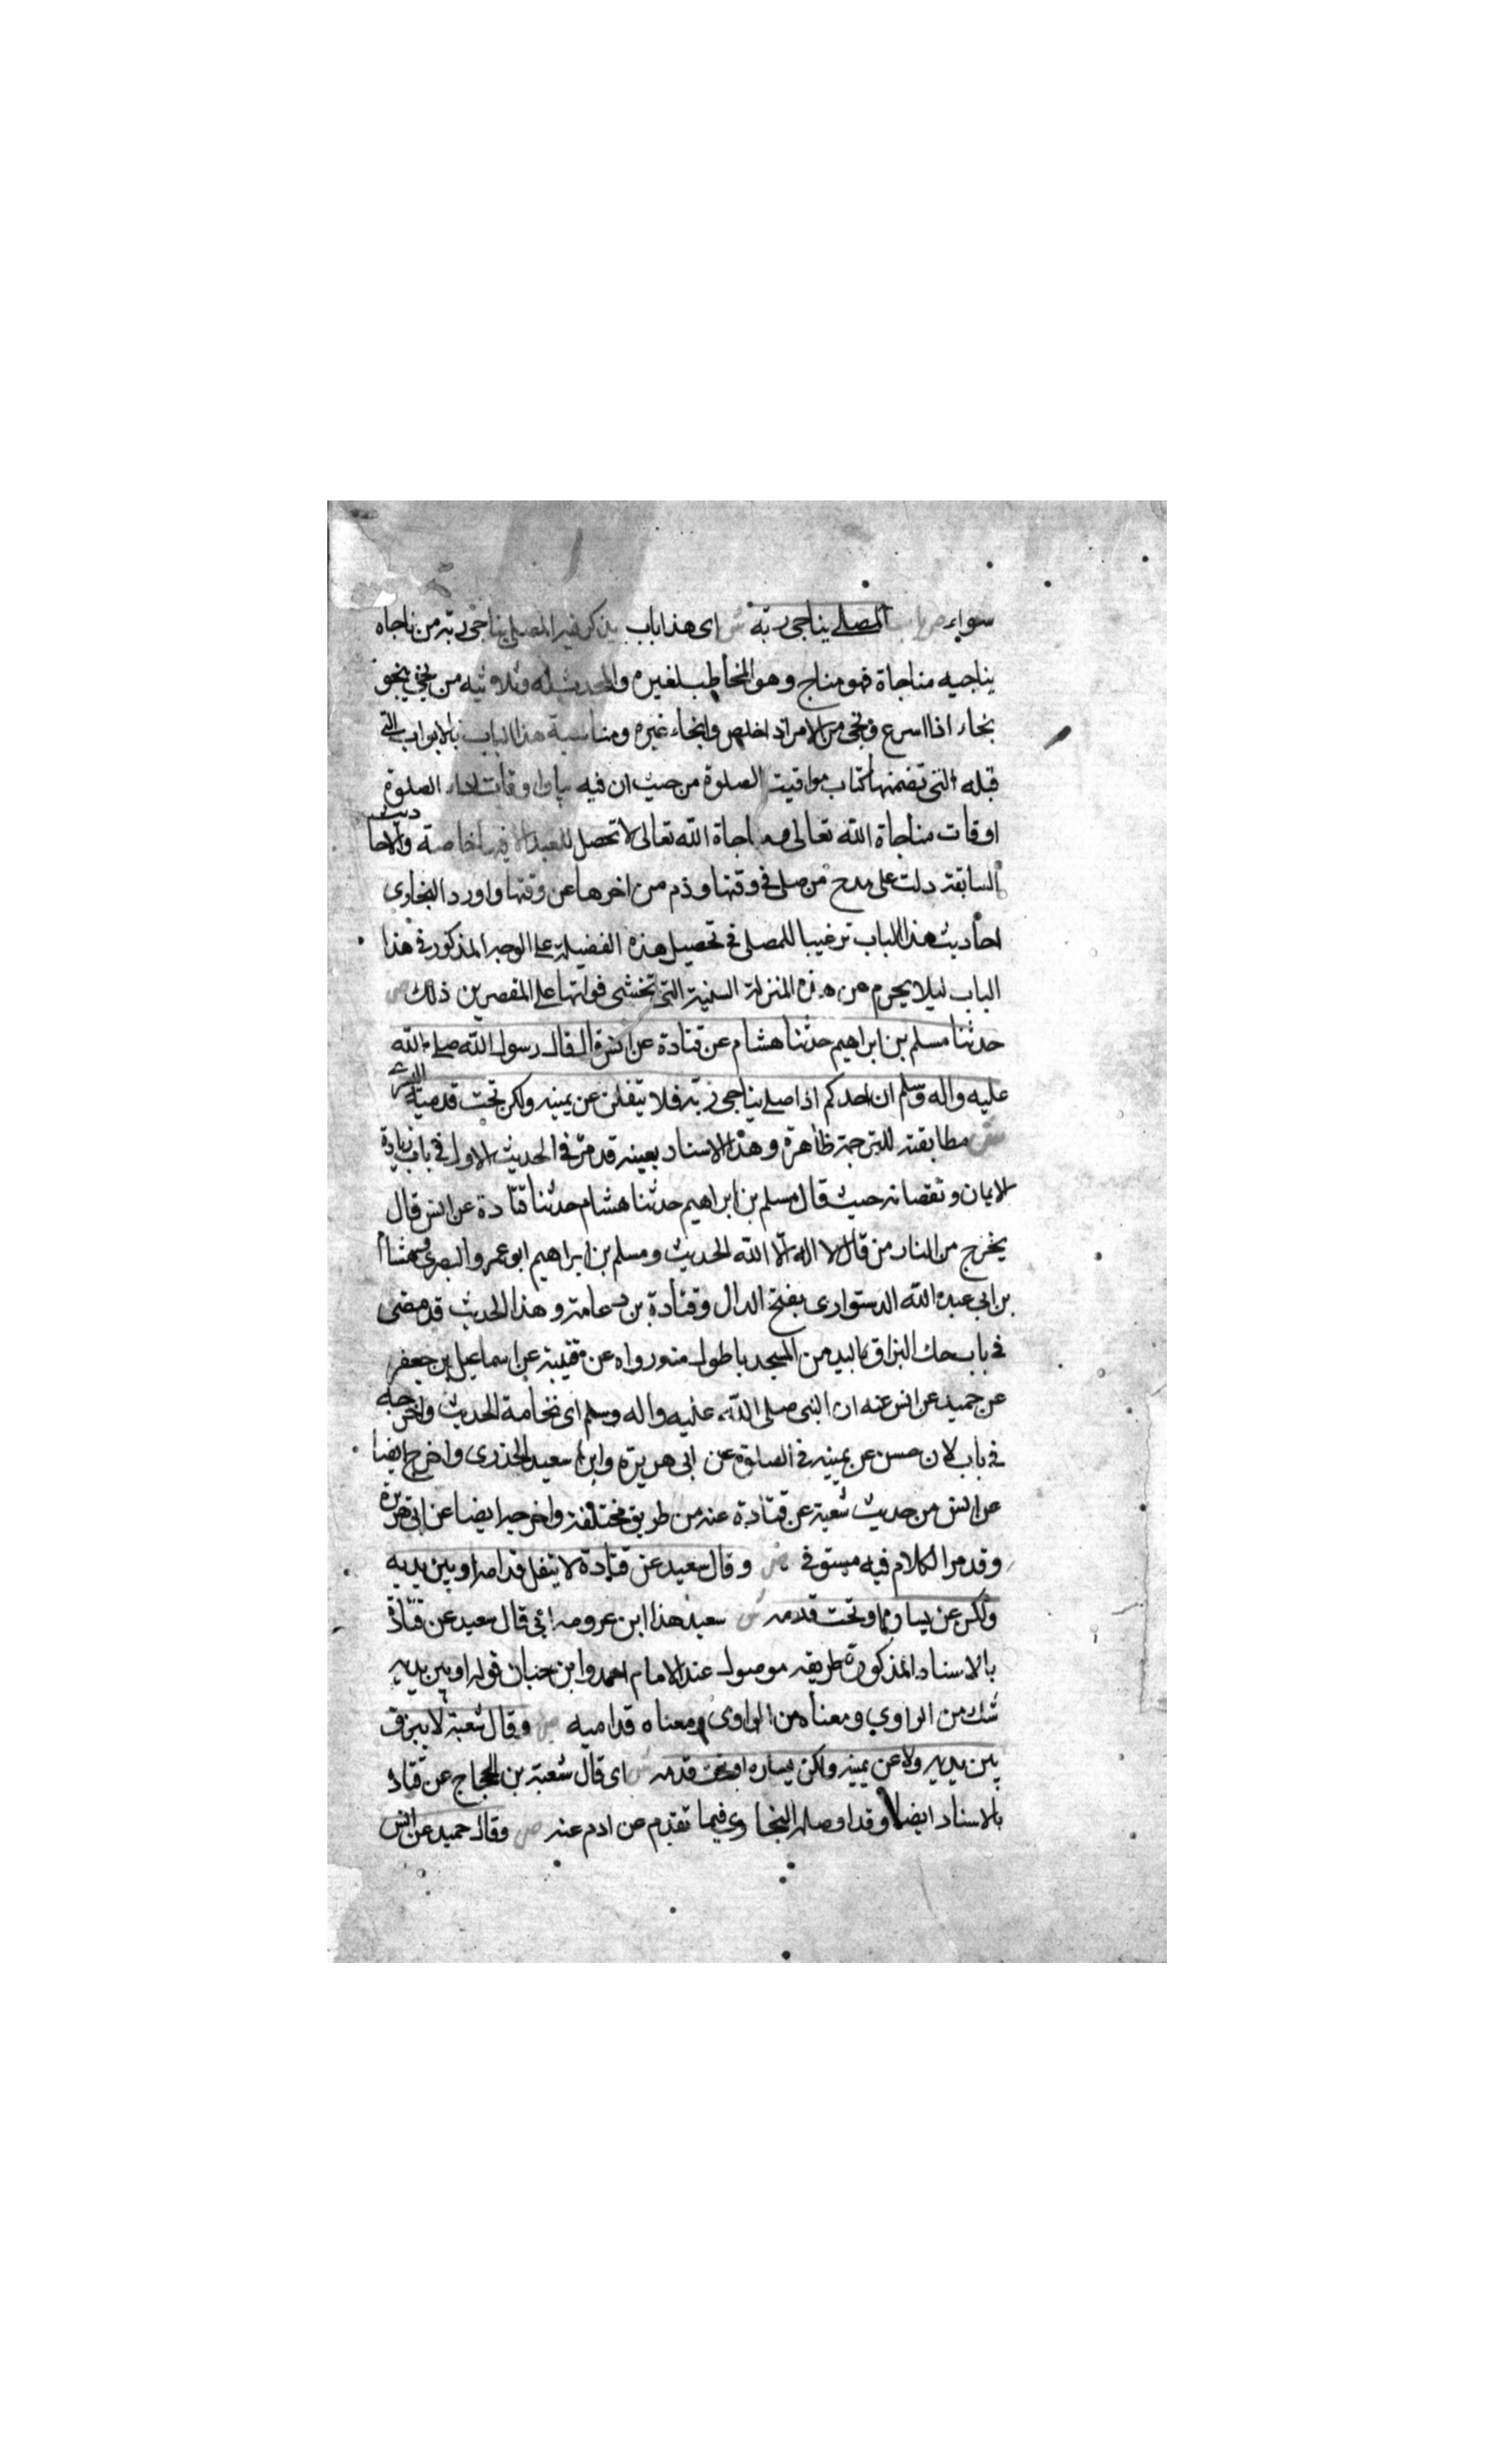 سواء ص باب المصلي يناجي ربه ش اى هذا باب يذكر فيه المصلي يناجي ربه من ناجاه
يناجيه مناجاة فهو مناج وهو المخاطب لغيره والمحدث له وثلاثيه من نجى ينجو
نجاء اذا اسرع ونجى من الامر اذا خلص وانجاه غيره ومناسبة هذا الباب بالابواب التي
قبله التى تضمنها كتاب مواقيت الصلوة من حيث ان فيه بيان اوقات اداء الصلوة
اوقات مناجاة الله تعالى ومناجاة الله تعالى لا تحصل للعبد الا فيها خاصة والاحاديث
السابقة دلت على مدح من صلى في وقتها وذم من اخرها عن وقتها واورد البخاري
احاديث هذا الباب ترغيبا للمصلى في تحصيل هذه الفضيلة على الوجه المذكور في هذا
الباب ليلا يحرم عن هذه المنزلة السنية التى تخشى فواتها على المقصرين ذلك ص
حدثنا مسلم بن ابراهيم حدثنا هشام عن قتادة عن انس قال قال رسول الله صلى الله
عليه واله وسلم ان احدكم اذا صلى يناجى ربه فلا يتفلن عن يمينه ولكن تحت قدميه اليسرى
ش مطابقته للترجمة ظاهرة وهذا الاسناد بعينه قد مر في الحديث الاول في باب زيادة
الايمان ونقصانه حيث قال مسلم بن ابراهيم حدثنا هشام حدثنا قتادة عن انس قال
يخرج من النار من قال لا اله الا الله الحديث ومسلم بن ابراهيم ابو عمرو البصرى وهشام
بن ابي عبد الله الدستوارى بفتح الدال وقتادة بن دعامة وهذا الحديث قد مضى
في باب حك البزاق باليد من المسجد باطول منه رواه عن قتيبة عن اسماعيل بن جعفر
عن حميد عن انس عنه ان النبى صلى الله عليه واله وسلم اى نخامة الحديث واخرجه
في باب لا عن يمينه في الصلوة عن ابى هريرة وابى سعيد الخذرى واخرج ايضا
عن انس من حديث شعبة عن قتادة عنه من طريق مختلفة واخرجه ايضا عن ابى هريرة
وقد مر الكلام فيه مستوفى ص وقال سعيد عن قتادة لا يتفل قدامه او بين يديه
ولكن عن يساره او تحت قدمه ش سعيد هذا ابن عروبه اى قال سعيد عن قتادة
بالاسناد المذكورة طريقه موصول عند الامام احمد وابن حبان قوله او بين يديه
شك من الراوي ومعناه من الراوى ومعناه قداميه ص وقال شعبة لا يبزق
بين يديه ولا عن يمينه ولكن يساره او تحت قدمه ش اى قال شعبة بن الحجاج عن قتادة
بالاسناد ايضا وقد اوصله البخاري فيما تقدم عن ادم عنه ص وقال حميد عن انس